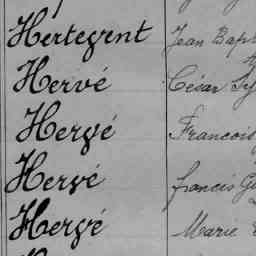 Hertegent Jean Bapt
Hervé César
Hervé Francois
Hervé francis
Hervé Marie